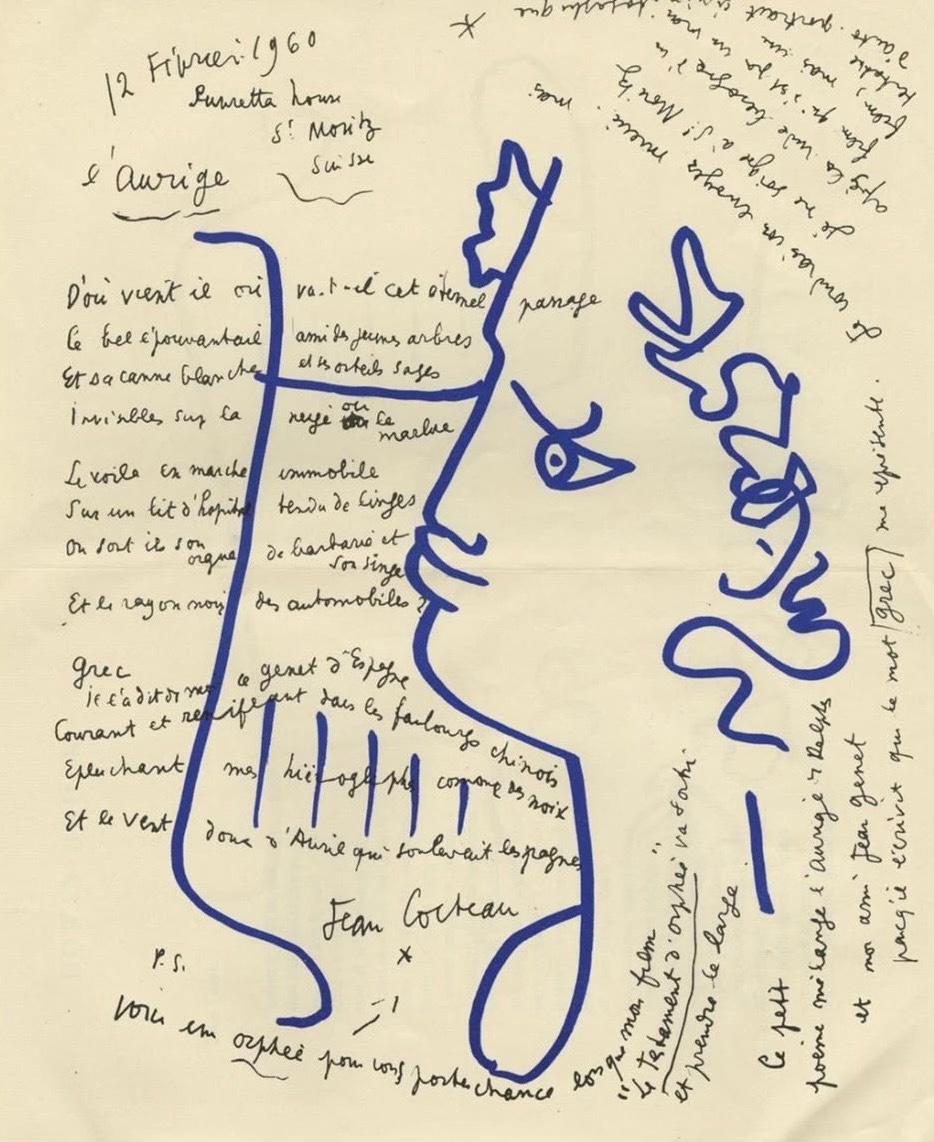 12 Février 1960
Suvretta house
St Moritz
Suisse
l'Aurige
D'où vient il où va-t-il cet éternel passage
Le bel épouvantail ami des jeunes arbres
Et sa canne blanche et ses orteils sages
Invisibles sur la neige ou le marbre
Le voila en marche immobile
Sur un lit d'hopital tendu de linges
Où sont ils son orgue de barbarie et son singe
Et le rayon noir des automobiles ?
grec
je l'a dit ce genet d'Espagne
Courant et reniflant dans les faubourgs chinois
Epluchant mes hiéroglyphes comme des noix
Et le vent doux d'Avril qui soulevait les pagnes
Jean Cocteau
*
P.S.
Voici un orphée pour vous porter chance lorsque mon film
"le testament d'orphée" va sortir
et prendre le large
Ce petit
poème mélange l'aurige de Delphes
et mon ami Jean genet
parce écrivit que le mot grec me représente.
Je voudrais vous envoyer mieux. mais
je me soigne à St Moritz
après une d'un
film qui n'est pas un vrai
film, mais une
d'auto-portrait
*